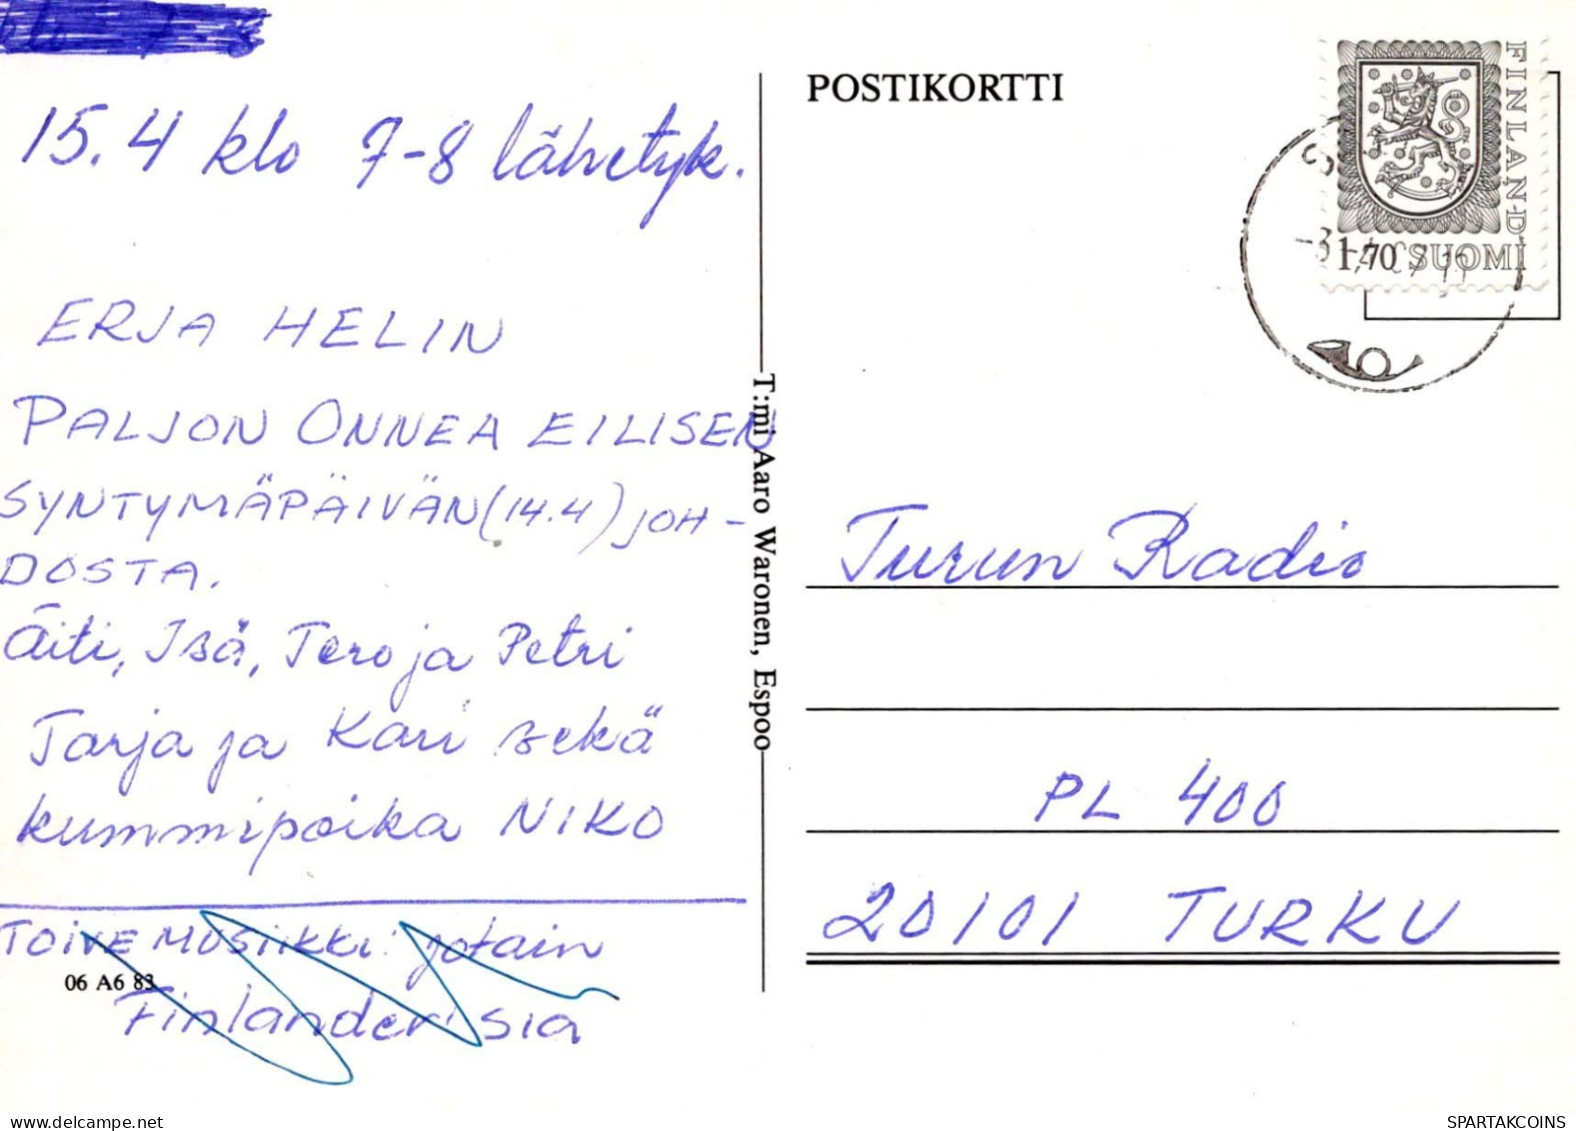 15.4 klo 7-8 lähetyk.
ERJA HELIN
PALJON ONNEA EILISEN
SYNTYMÄPÄIVÄN (14.4) JOH-
DOSTA.
Äiti, Isä, Tero ja Petri
Tarja ja Kari sekä
kummipoika NIKO
TOIVEMUSIIKKI: jotain
06 A6 83
Finlanderisia
T:mi Aaro Waronen, Espoo
POSTIKORTTI
FINLAND
1,70 SUOMI
Turun Radio
PL 400
20101 TURKU
delcampe.net
SPARTAKCOINS